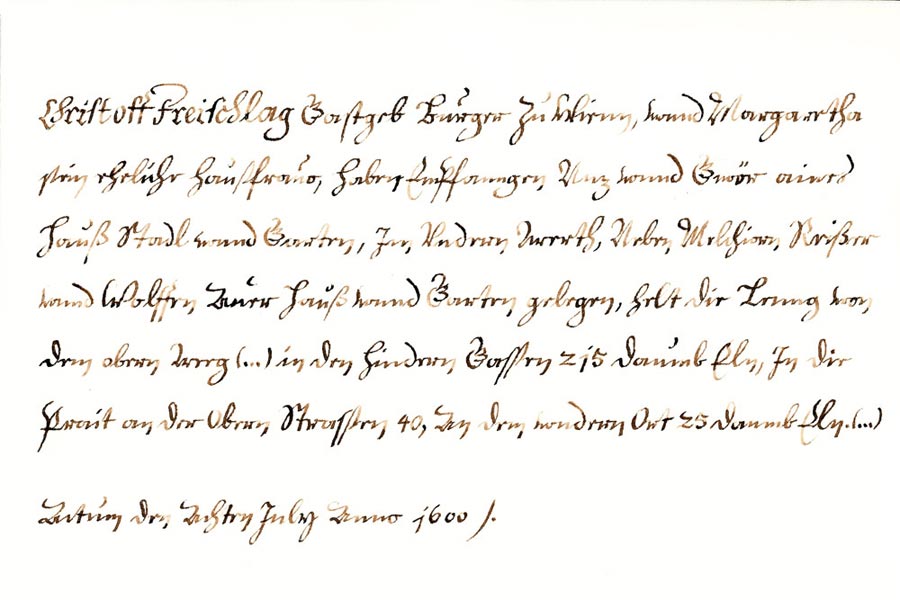 Christoff Freischlag Gastgeb Burger Zu Wienn, vnnd Margaretha
sein eheliche hausfrauo, haben Empfanngen Nuz vnnd Gwöer aines
Hauß Stadl vnnd Garten, Im Vndern Werth, Neben Melchiorn Reißer
vnnd Wolffen Auer Hauß vnnd Garten gelegen, helt die Lenng von
dem obern Weeg (...) in den hindern Gassen 215 daumb Eln, In die
Prait an der Obern Strassen 40, An dem vondern Ort 25 daumb Eln. (...)
Actum den Achten July Anno 1600 /.